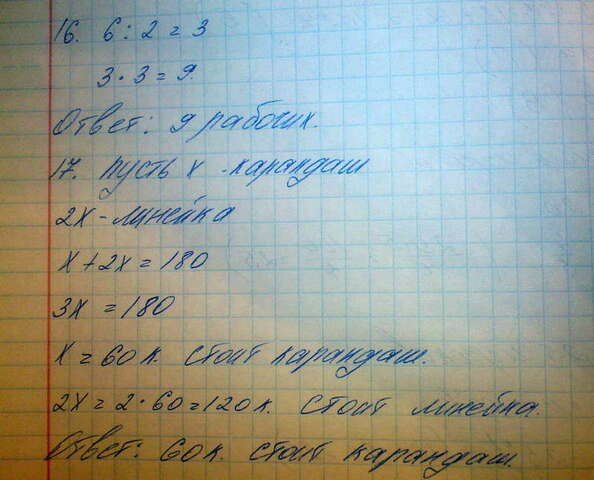 16. 6 : 2 = 3
3 · 3 = 9.
Ответ: 9 рабочих.
17. пусть х - карандаш
2х - линейка
х + 2х = 180
3х = 180
х = 60 к. стоит карандаш.
2х = 2 · 60 = 120 к. стоит линейка.
Ответ: 60 к. стоит карандаш.